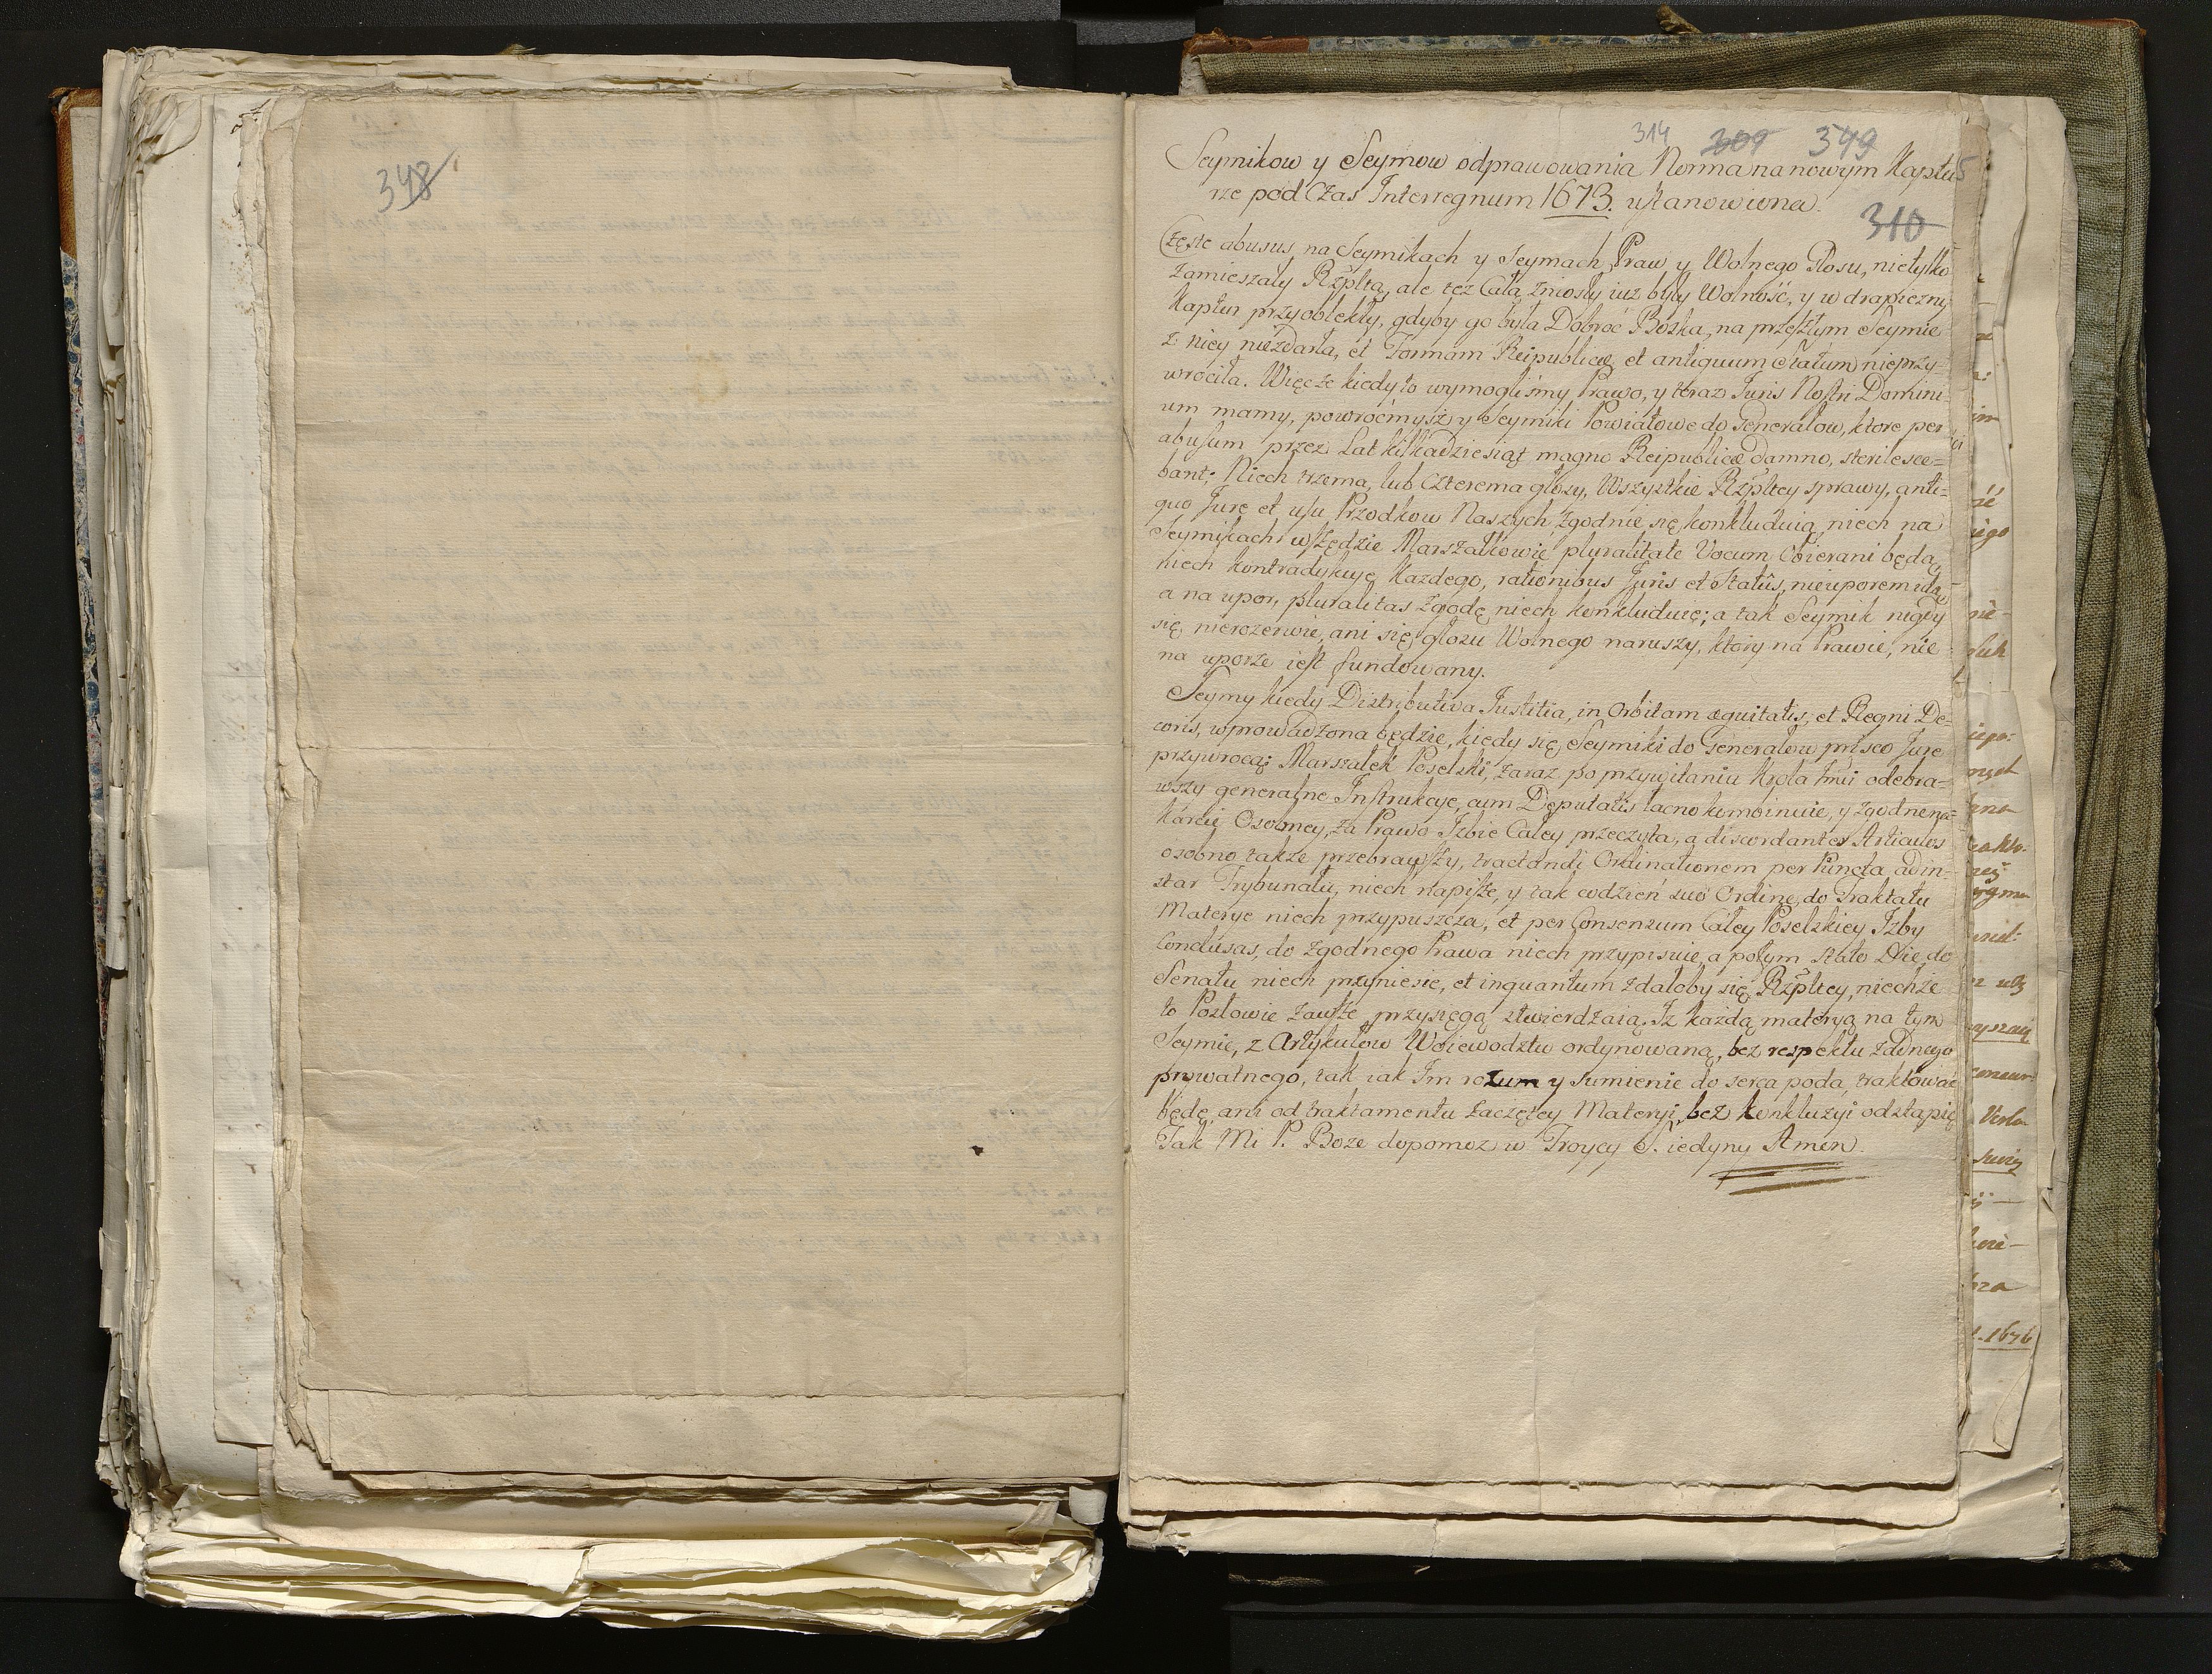 348
314 309 349
Seymikow y Seymow odprawowania Norma na nowym Kaptu
rze pod Czas Interregnum 1673. ustanowiona.
310
Częste abusus, na Seymikach y Seymach, Praw y Wolnego Głosu, nietylko
zamieszały Rzpltą, ale tez Całą zniosły iuz były Wolność, y w drapiezny
Kaptur przyoblekły, gdyby go była Dobroć Boska, na przeszłym Seymie
z niey niezdarła, et Formam Reipublicæ, et antiquum Statum nieprzy-
wrociła. Więc ze kiedy to wymogliśmy Prawo, y teraz Juris Nostri Domini-
um mamy, powroćmysz y Seymiki Powiatowe do Generałow, ktore per
abusum przez Lat kilkadziesiąt magno Reipublicæ damno, sterilesce-
bant; Niech trzema, lub czterema głosy, Wszystkie Rzpltey sprawy, anti-
quo Jure et usu Przodkow Naszych zgodnie się konkluduią, niech na
Seymikach wszędzie Marszałkowie pluralitate Vocum Obierani będą,
niech kontradykcyę kazdego, rationibus Juris et Statûs, nieuporem
a na upor, pluralitas zgodę niech konkluduie; a tak Seymik nigdy
się nierozerwie, ani się głosu Wolnego naruszy, ktory na Prawie, nie
na uporze iest fundowany.
Seymy kiedy Distributiva Justitia, in Orbitam æquitatis, et Regni De-
coris, wprowadzona będzie, kiedy się Seymiki do Generałow prisco Jure
przywrocą; Marszałek Poselski, zaraz po przywitaniu Krola Jmci odebra-
wszy generalne Instrukcye, cum Deputatis łacno kombinuie, y zgodne na
Karcie Osobney, za Prawo Izbie Całey przeczyta, a discordantes Articulos
osobno takze przebrawszy, tractandi Ordinationem per Puncta, ad in-
star Trybunału, niech napisze, y tak codzień suo Ordine, do Traktatu
Materye niech przypuszcza, et per Consensum Całey Poselskiey Izby
Conclusas, do zgodnego Prawa niech przypisuie, a potym stato Die, do
Senatu niech przyniesie, et inquantum zdałoby się Rzpltey, niechże
to Posłowie zawsze przysięgą stwierdzaią. Iz kazdą materyą na tym
Seymie, z Artykułow Woiewodztw ordynowaną, bez respektu zadnego
prywatnego, tak iak Im rozum y sumienie do serca poda, traktować
będę, ani od traktamentu zaczętey Materyi, bez konkluzyi odstąpię
Tak Mi P. Boze dopomoz w Troycy S. iedyny Amen.
1676